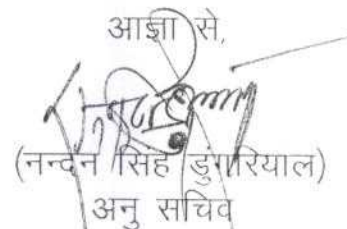 आज्ञा से,
(नन्दन सिंह डुंगरियाल)
अनु सचिव